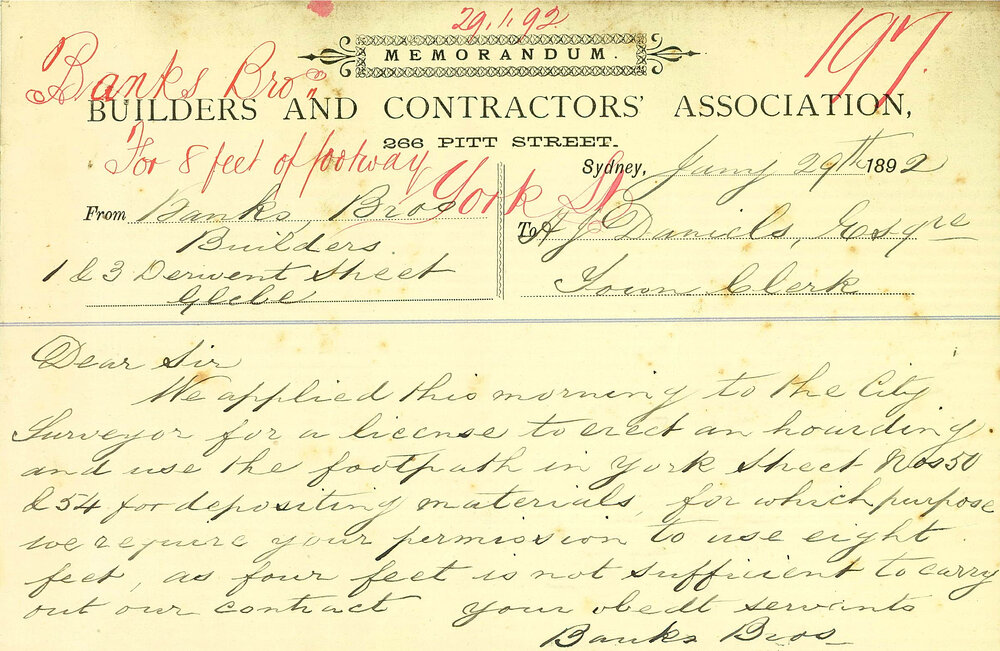 29.1.92
197.
MEMORANDUM.
Banks Bros
BUILDERS AND CONTRACTORS' ASSOCIATION,
266 PITT STREET.
For 8 feet of footway
York St
Sydney, Jany 29th 1892
From Banks, Bros
Builders
1 & 3 Derwent Street
Glebe
To A J Daniels, Esqre
Town Clerk
Dear Sir
We applied this morning to the City
Surveyor for a license to erect an hoarding
and use the footpath in York Street Nos 50
& 54 for depositing materials, for which purpose
we require your permission to use eight
feet, as four feet is not sufficient to carry
out our contract your obedt servants
Banks Bros